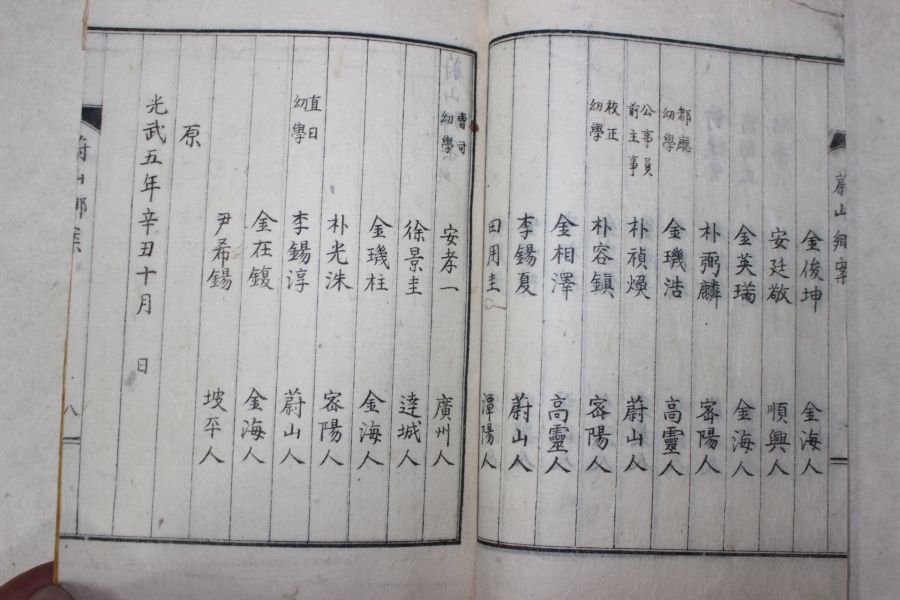 蔚山鄕案
金俊坤 金海人
安廷敬 順興人
金英瑞 金海人
朴弼麟 密陽人
都廳 幼學 金璣浩 高靈人
公事員 前主事 朴禎煥 蔚山人
校正 幼學 朴容鎭 密陽人
金相澤 高靈人
李錫夏 蔚山人
田用圭 潭陽人
曹司 幼學 安孝一 廣州人
徐景圭 達城人
金璣柱 金海人
朴光洙 密陽人
直日 幼學 李錫淳 蔚山人
金在鍑 金海人
尹希錫 坡平人
原
光武五年辛丑十月 日
蔚山鄕案 八